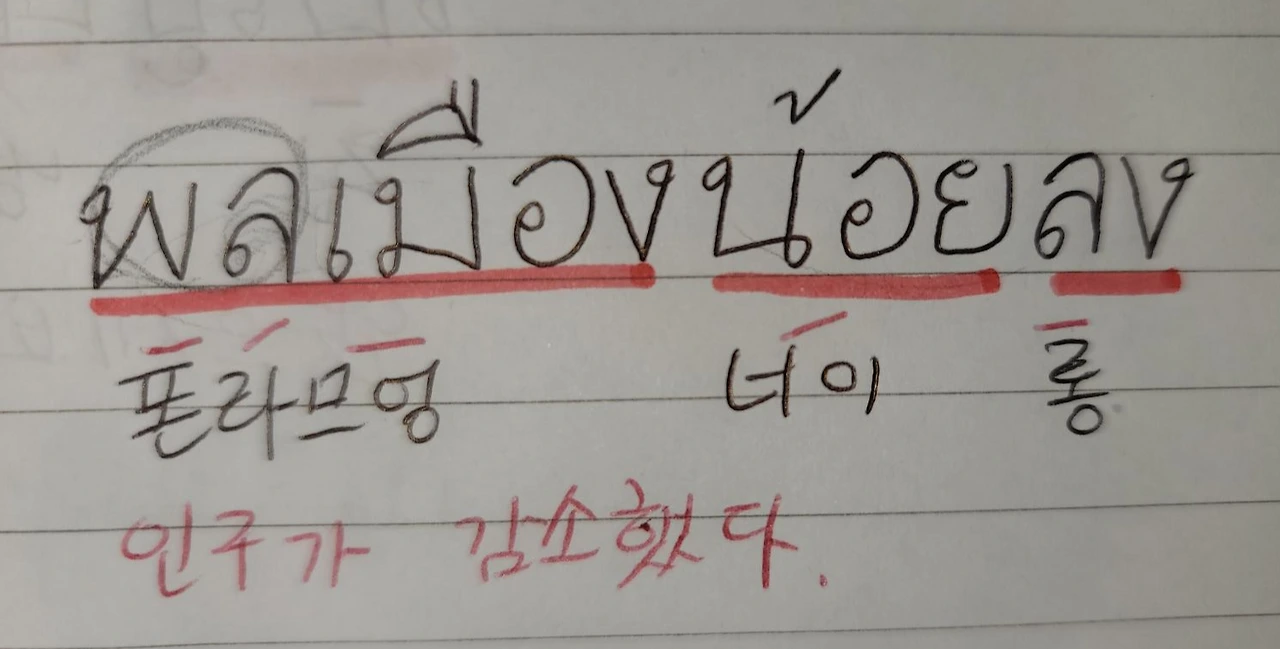 พลเมืองน้อยลง
폰라므엉 너이 롱
인구가 감소했다.